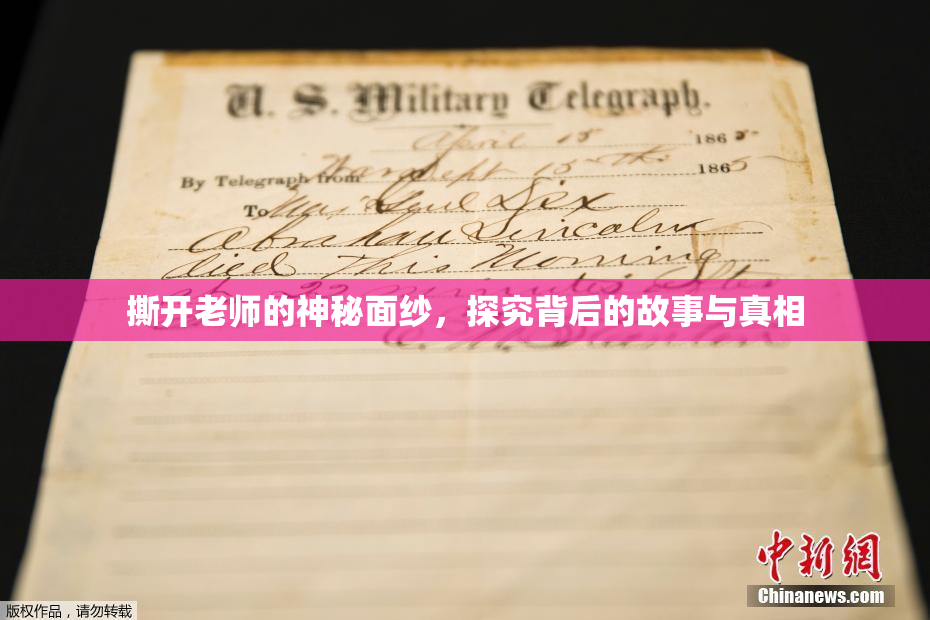 U. S. Military Telegraph.
April 15 1865
By Telegraph from War Dept 15th 1865
To Maj Genl Dix
Abraham Lincoln
died This Morning
22 minutes after
撕开老师的神秘面纱，探究背后的故事与真相
E. M. Stanton
中新网
Chinanews.com
版权作品，请勿转载